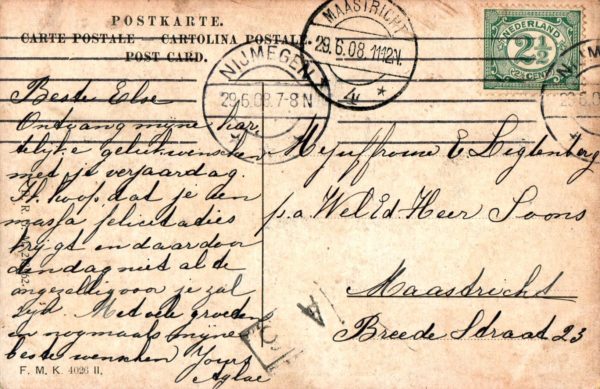 POSTKARTE.
CARTE POSTALE — CARTOLINA POSTALE.
POST CARD.
MAASTRICHT
29.6.08.11-12V.
4 *
NIJMEGEN
29.6.08.7-8N
NEDERLAND
2½
CENT
Beste Else
Ontvang mijne har
telijke gelukwenschen
met je verjaardag.
Ik hoop dat je een
massa felicitaties
krijgt en daardoor
den dag niet al te
ongezellig voor je zal
zijn. Met vele groeten
en nogmaals mijne
beste wenschen Yours
Aglae
Mejuffrouw E Ligtenberg
p.a. WelEd Heer Soons
Maastricht
Breede Straat 23
A
F. M. K. 4026 II,